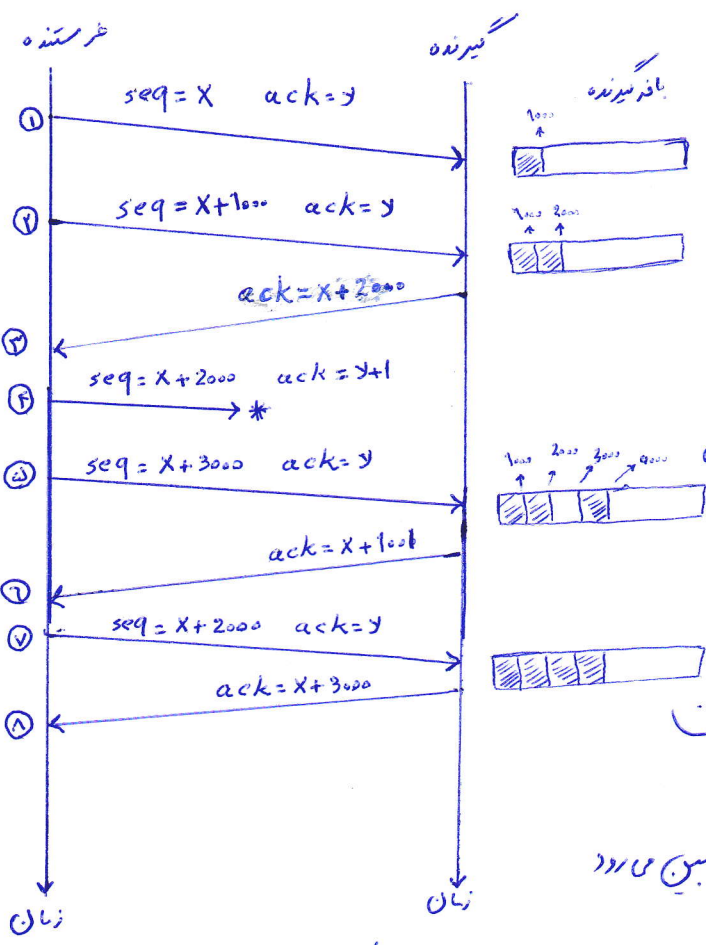 فرستنده
گیرنده
بافر گیرنده
۱
seq = X ack = y
1000
۲
seq = X+1000 ack = y
1000 2000
ack = X+2000
۳
seq = X+2000 ack = y+1
۴
۵
seq = X+3000 ack = y
1000 2000 3000 4000
ack = X+1001
۶
۷
seq = X+2000 ack = y
ack = X+3000
۸
بین می رود
زمان
زمان